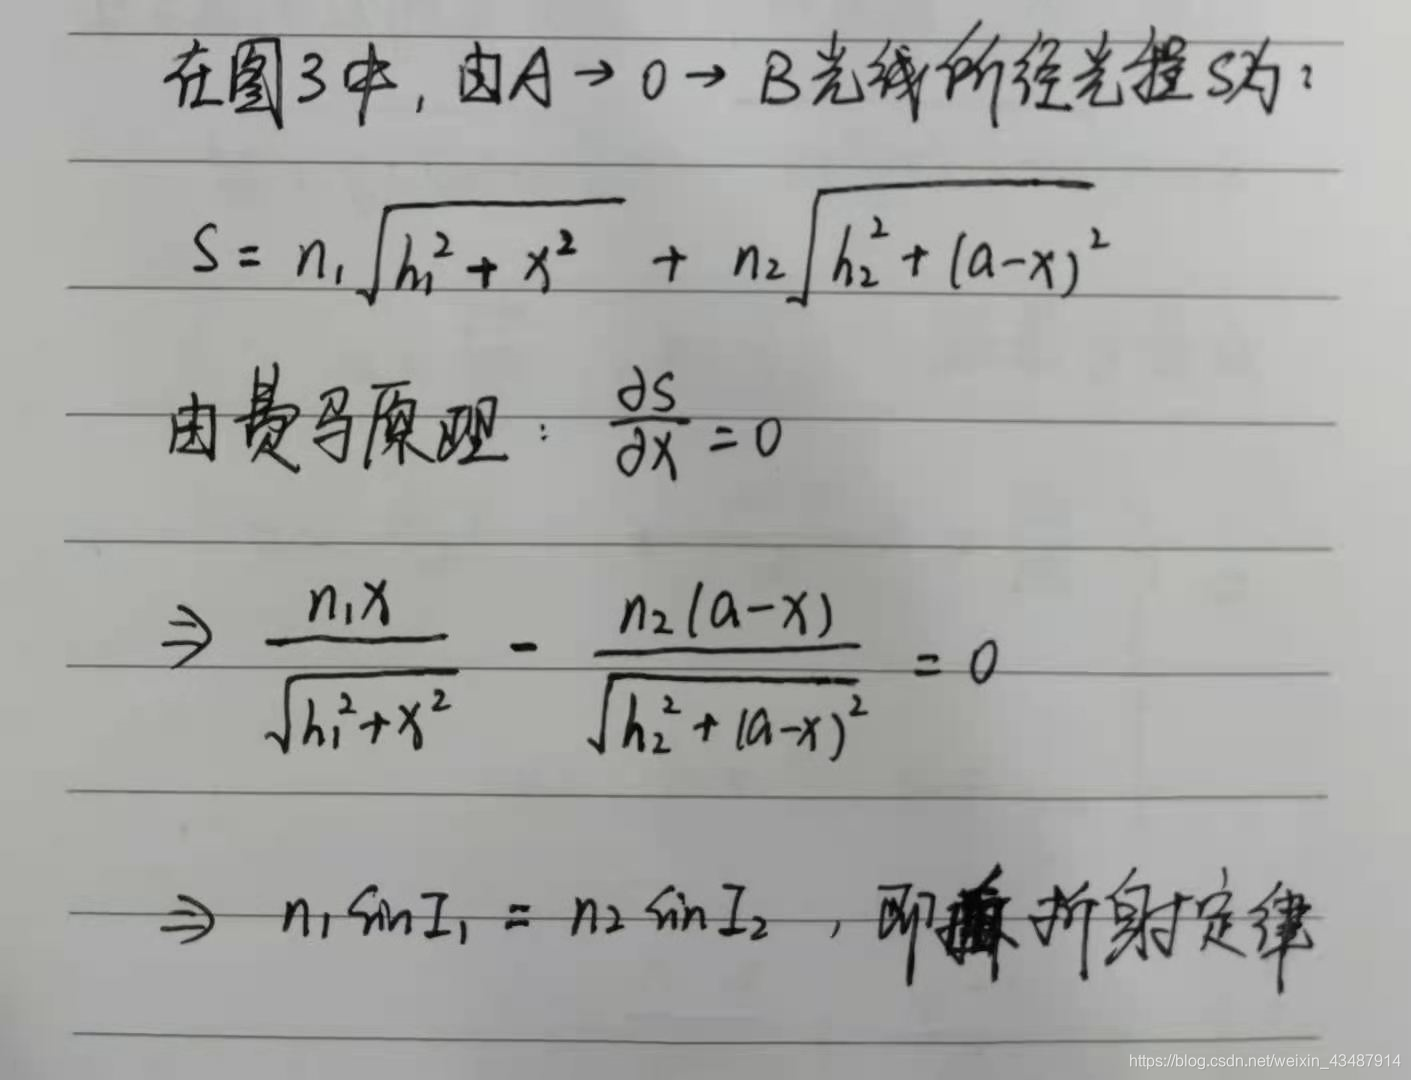 在图3中，由A→O→B光线所经光程S为：
S = n₁√(h₁² + x²) + n₂√(h₂² + (a-x)²)
由费马原理：∂S/∂x = 0
⇒ n₁x/√(h₁²+x²) - n₂(a-x)/√(h₂²+(a-x)²) = 0
⇒ n₁ sin I₁ = n₂ sin I₂，即折射定律
https://blog.csdn.net/weixin_43487914